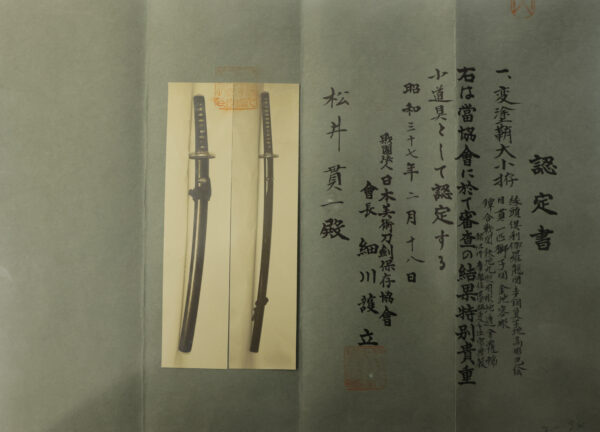 認定書
一、変塗鞘大小拵
縁頭倶利伽羅龍図
目貫一匹獅子図
右は當協會に於て審査の結果特別貴重
小道具として認定する
昭和三十七年二月十八日
財團法人日本美術刀剣保存協會
會長 細川護立
松井貫一殿